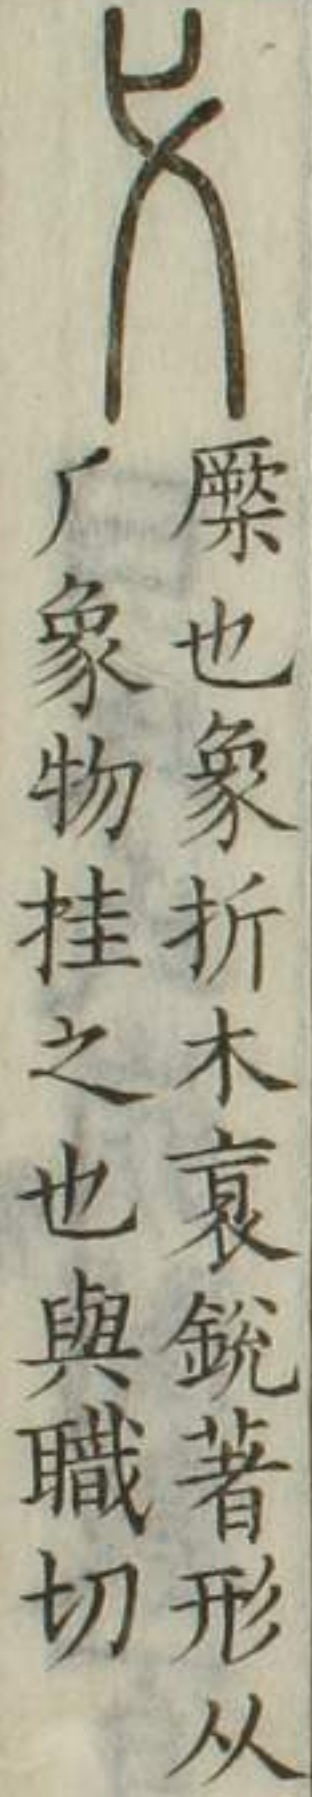 弋
橜也象折木衺銳著形从
𠂆象物挂之也與職切